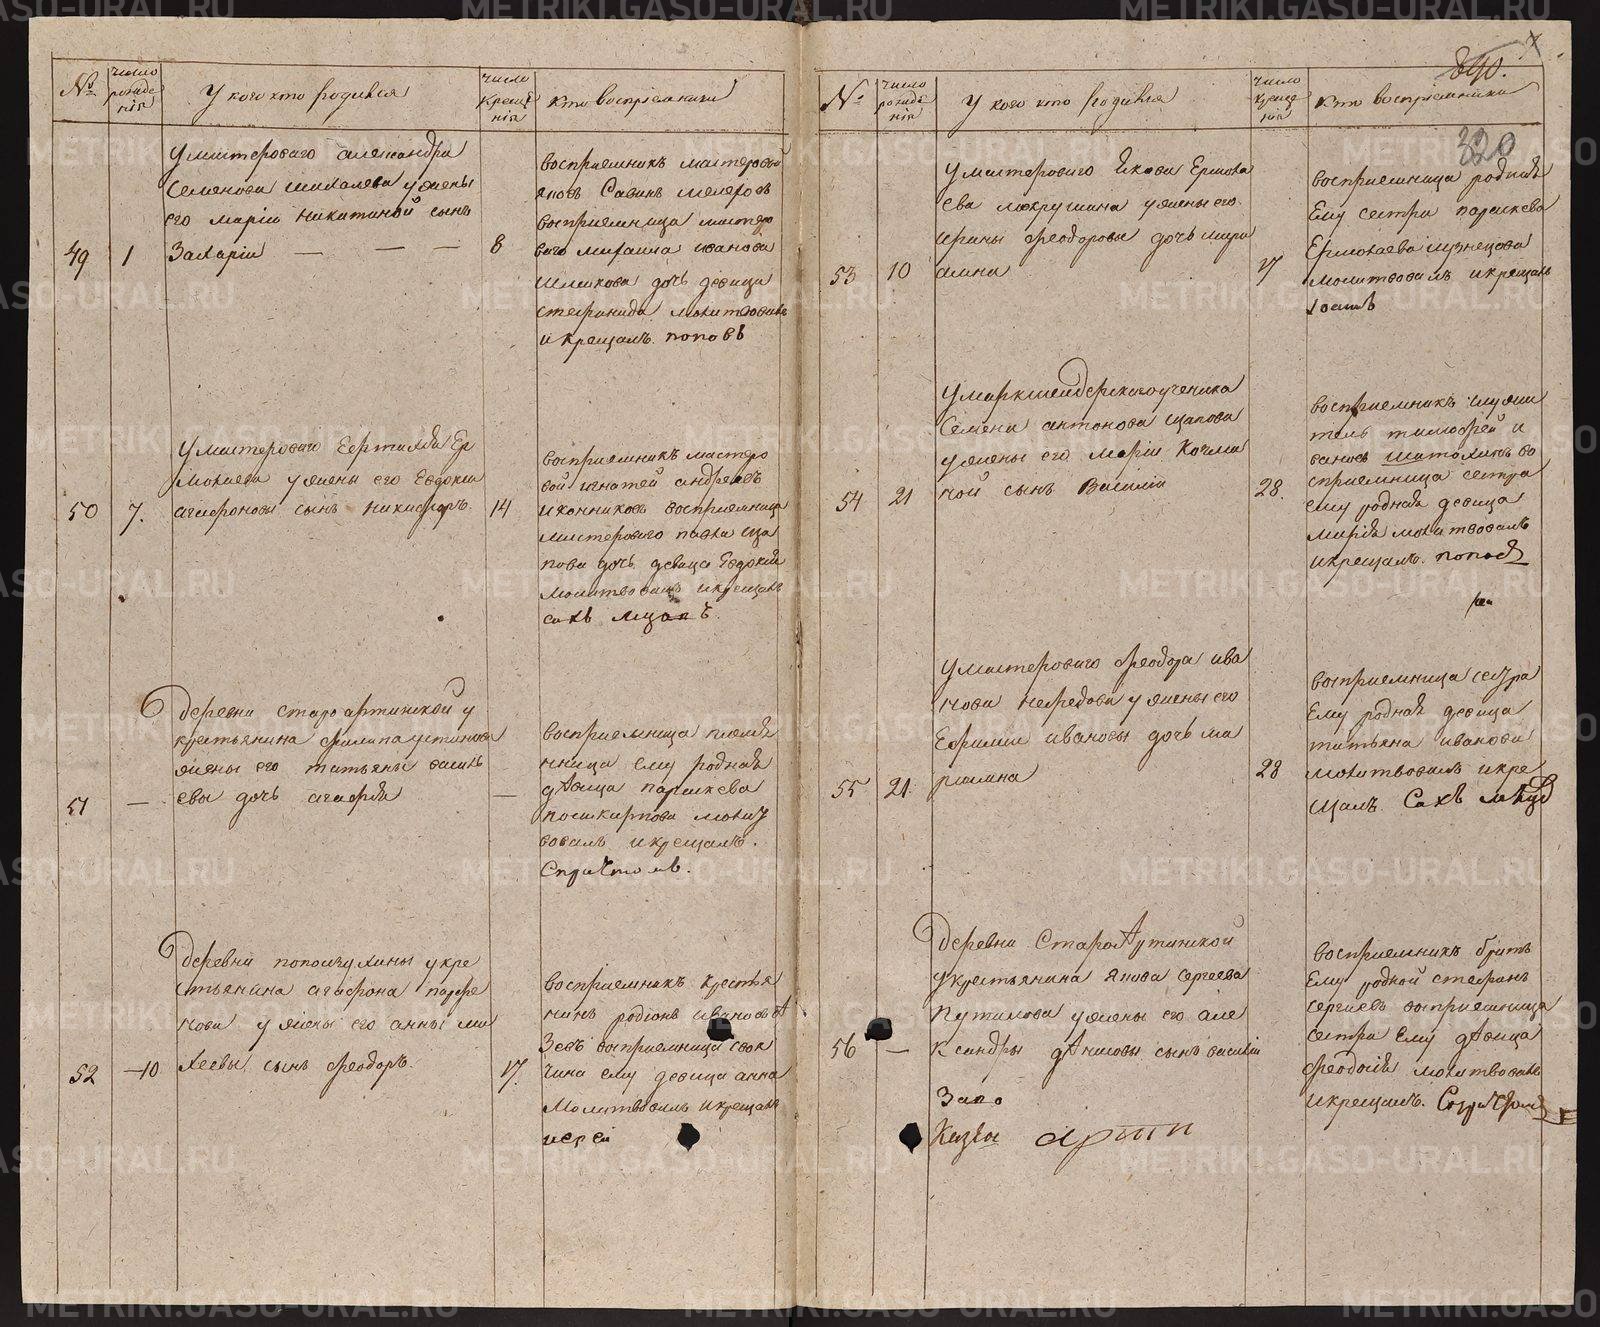 №
число рожде нія
У кого кто родился
число креще нія
кто восприемники
49
1
У мастероваго александра
Семенова шихалева у жены
его маріи никитиной сынъ
Захарій
8
восприемникъ мастеровый
яковъ Савинъ
восприемница мастеро
ваго михаила иванова
шишкова дочь девица
стефанида молитвовалъ
и крещалъ поповъ
50
7.
У мастероваго
Ер
молаева у жены его Евдокіи
агафоновы сынъ никифоръ.
14
восприемникъ мастеро
вой игнатей андреевъ
иконниковъ восприемница
мастероваго павла ща
пова дочь девица Евдокия
молитвовалъ и крещалъ
51
—
деревни старо артинской у
крестьянина филипа устинова
жены его татьяны василь
евы дочь агафія
—
восприемница племя
нница ему родная
дѣвица параскева
молит
вовалъ и крещалъ.
52
—10
деревни попогулины у кре
стьянина агафона парфе
нова у жены его анны ми
хеевы сынъ феодоръ.
17.
восприемникъ крестья
нинъ родіонъ
восприемница своя
чина ему девица анна
молитвовалъ и крещалъ
иерей
№
число рожде нія
У кого кто родился
число креще нія
кто восприемники
890.
320
53
10
У мастероваго Якова Ермола
ева мокрушина у жены его
ирины феодоровы дочь мари
амна
17
восприемница родная
Ему сестра параскева
Ермолаева кузнецова
молитвовалъ и крещалъ
54
21
У маркшейдерскаго ученика
Семена антонова щапова
у жены его маріи Козми
ной сынъ Василій
28.
восприемникъ служи
тель тимофей и
вановъ шатохинъ во
сприемница сестра
ему родная девица
марія молитвовалъ
и крещалъ.
55
21.
У мастероваго феодора ива
нова нефедова у жены его
Ефиміи ивановы дочь ма
ріамна
28
восприемница сестра
Ему родная девица
татьяна иванова
молитвовалъ и кре
щалъ.
56
—
деревни Староартинской
у крестьянина якова сергеева
путилова у жены его але
ксандры дѣнисовы сынъ василій
восприемникъ братъ
Ему родной стефанъ
сергиевъ восприемница
сестра ему дѣвица
феодосія молитвовалъ
и крещалъ.
METRIKI.GASO-URAL.RU